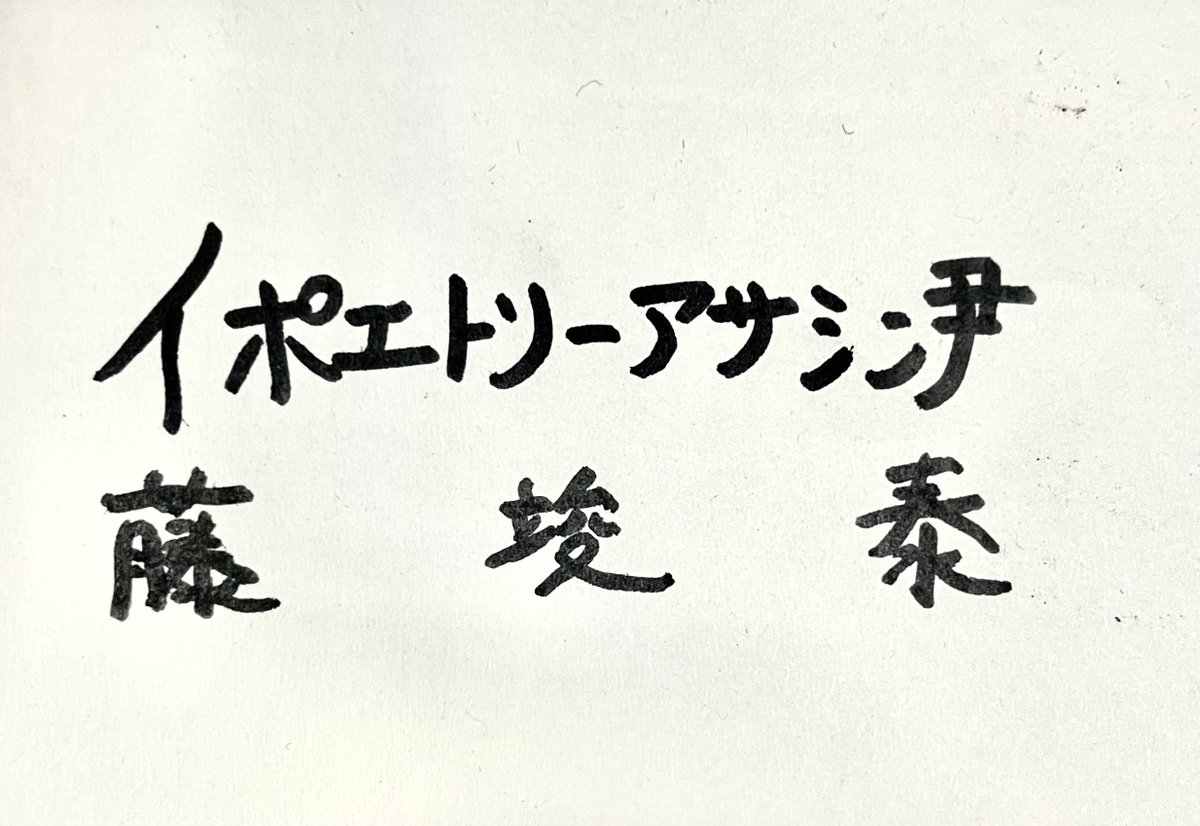 イポエトリーアサシン尹
藤 竣 泰